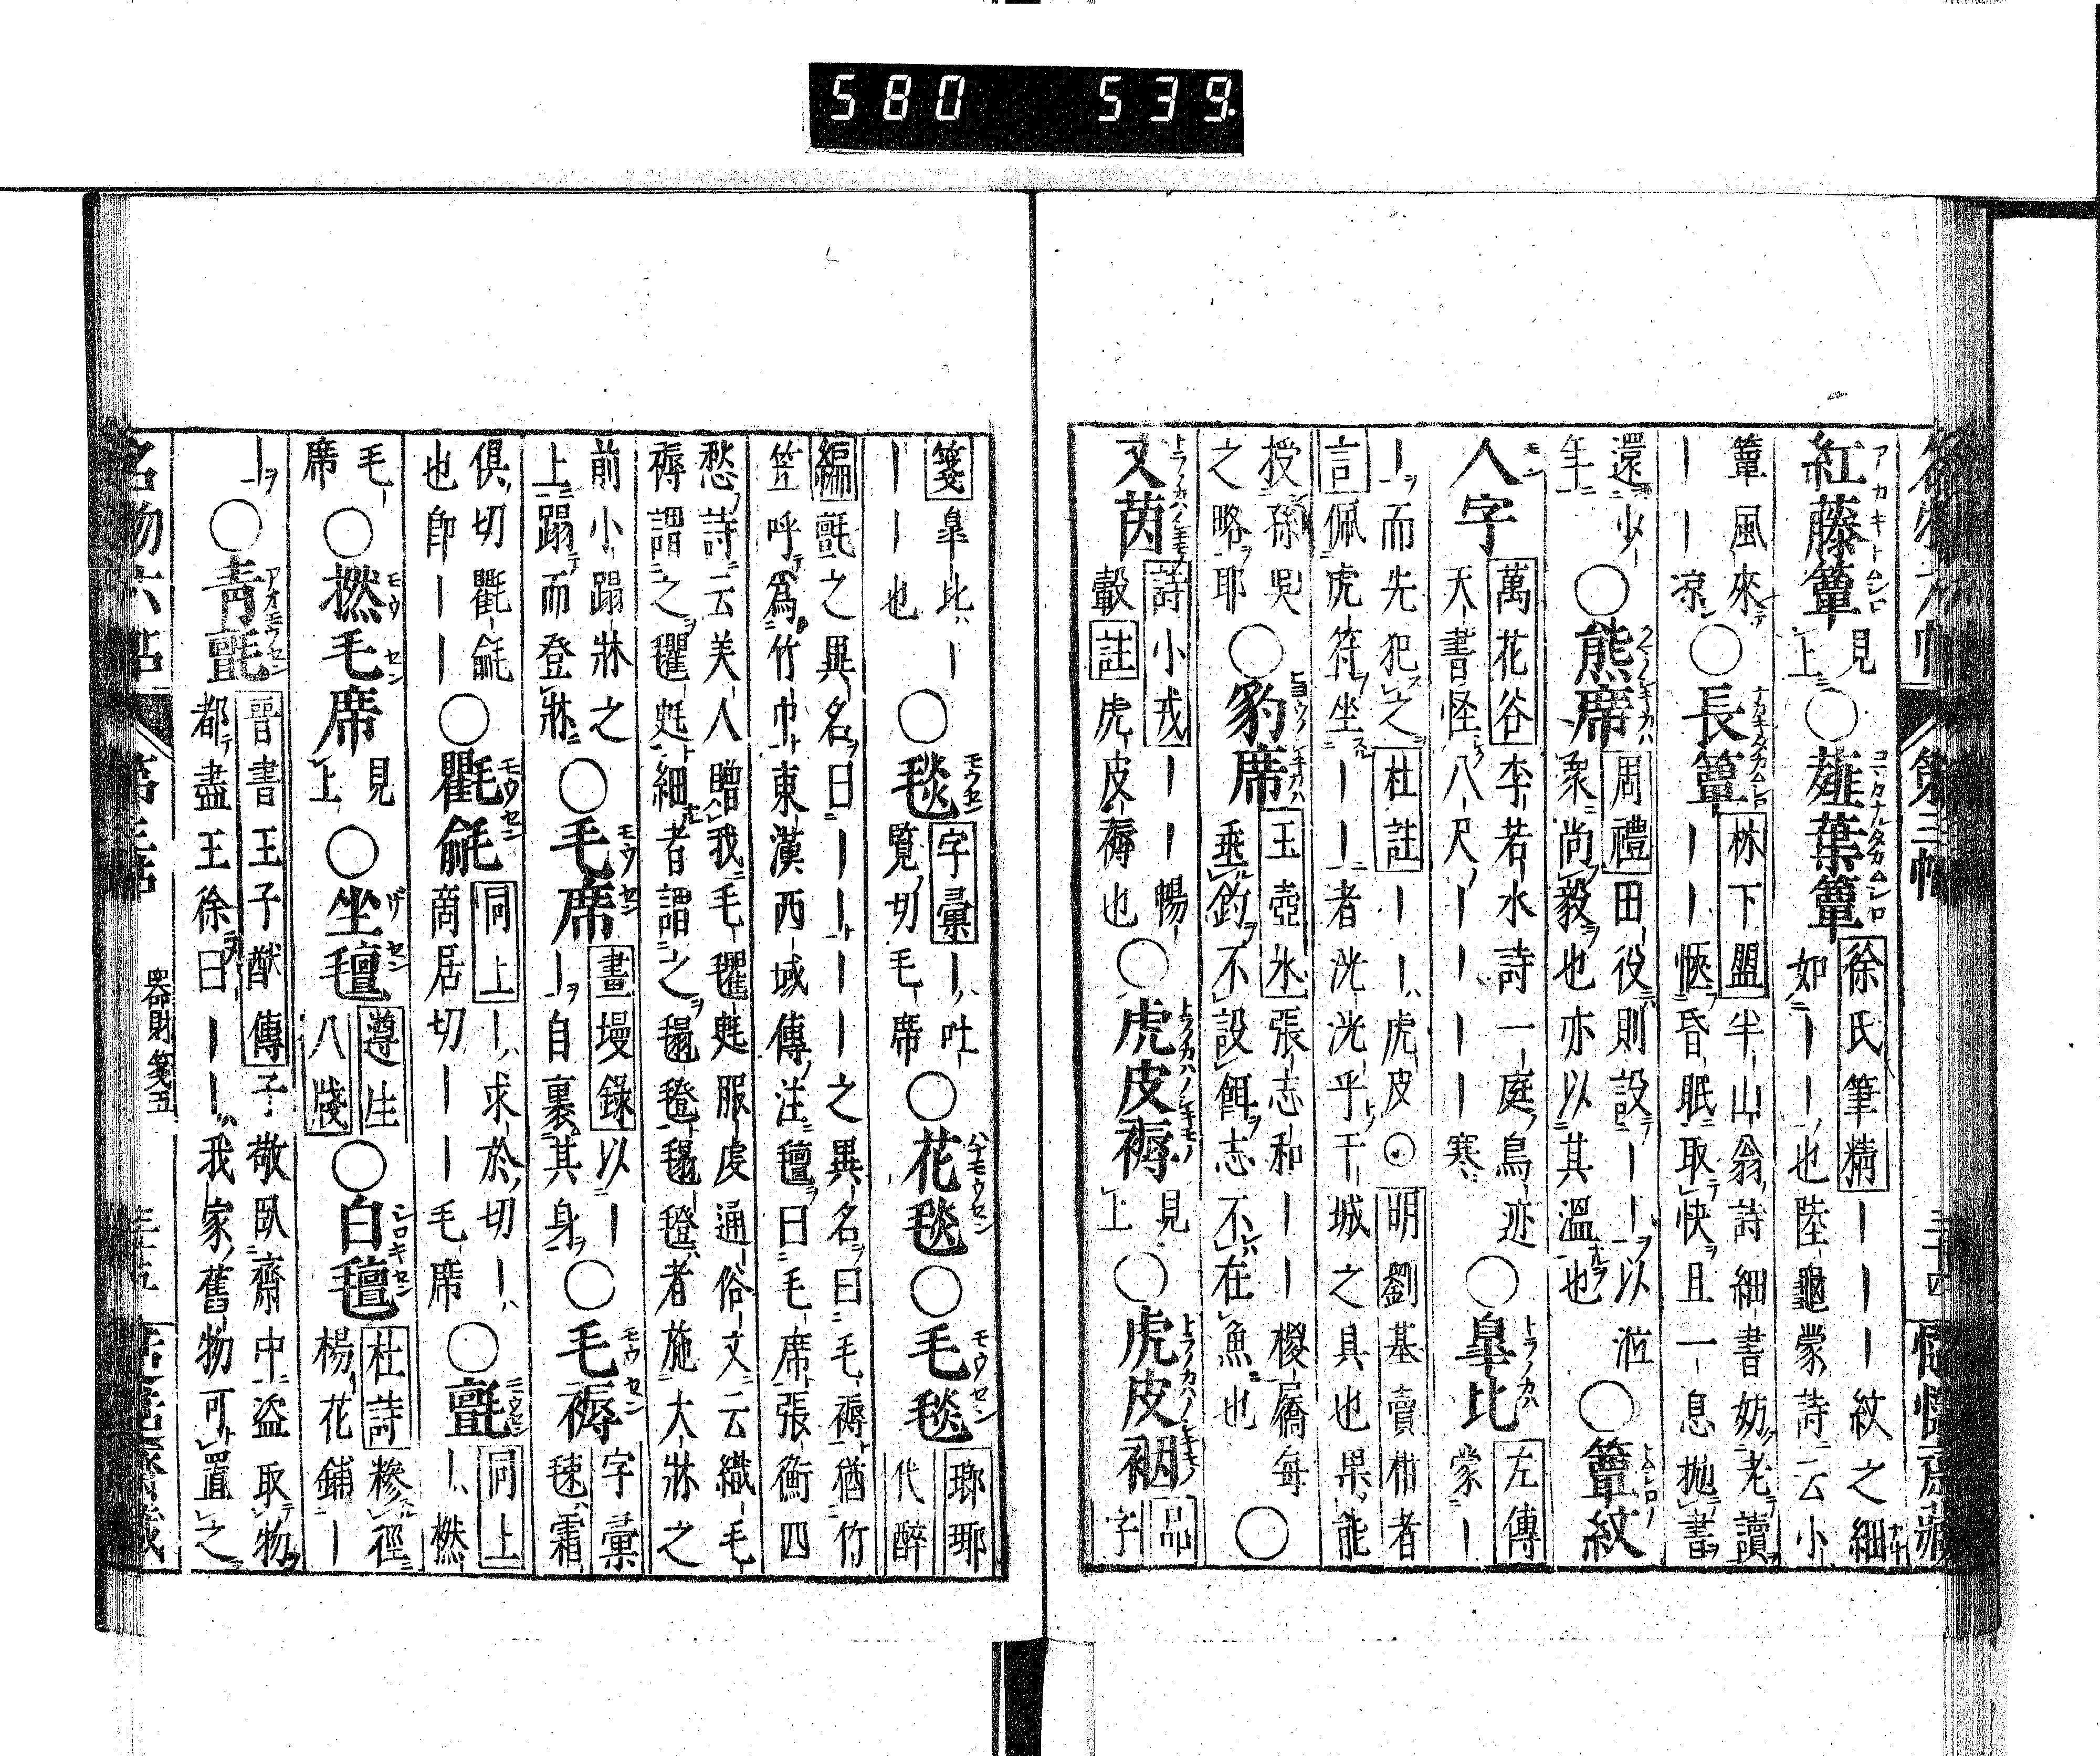 580 539
紅藤簟 見上 ○薤葉簟 徐氏筆精 ｜｜｜紋之細如｜｜也陸龜蒙詩云小
簟風來｜｜凉 ○長簟 林下盟 半山翁詩細書妨老讀｜｜愜昏眠取快且一息抛書
還少年 ○熊席 周禮 田役則設｜｜以涖衆尚毅也亦以其溫也 ○簟紋
人字 萬花谷 李若水詩一庭鳥迹天書怪八尺｜｜｜｜寒 ○皐比 左傳 蒙｜
｜而先犯之 杜註 ｜｜虎皮 明劉基賣柑者言 佩虎符坐｜｜者洸洸乎干城之具也果能
授孫吳之略耶 ○豹席 玉壺氷 張志和｜｜椶屩每垂釣不設餌志不在魚也 ○
文茵 詩小戎 ｜｜暢轂 註 虎皮褥也 ○虎皮褥 見上 ○虎皮裀 品字
箋 皐比｜｜｜也 ○毯 字彙 ｜吐覽切毛席 ○花毯 ○毛毯 瑯琊代醉
編 氈之異名曰｜｜｜｜之異名曰毛褥猶竹笠呼爲竹巾東漢西域傳注氊曰毛席張衡四
愁詩云美人贈我毛氍毹服虔通俗文云織毛褥謂之氍毹細者謂之毾㲪毾㲪者施大牀之
前小蹋牀之上蹋而登牀 ○毛席 畫墁錄 以｜｜自裹其身 ○毛褥 字彙 毧霜
俱切氍毹也卽｜｜ ○氍毹 同上 ｜求於切｜商居切｜｜毛席 ○氈 同上 ｜撚
毛席 ○撚毛席 見上 ○坐氊 遵生八牋 ○白氊 杜詩 糝徑楊花鋪｜
｜ ○靑氈 晉書王子猷傳 子敬臥齋中盜取物都盡王徐曰｜｜我家舊物可置之
名物六帖 器財箋五